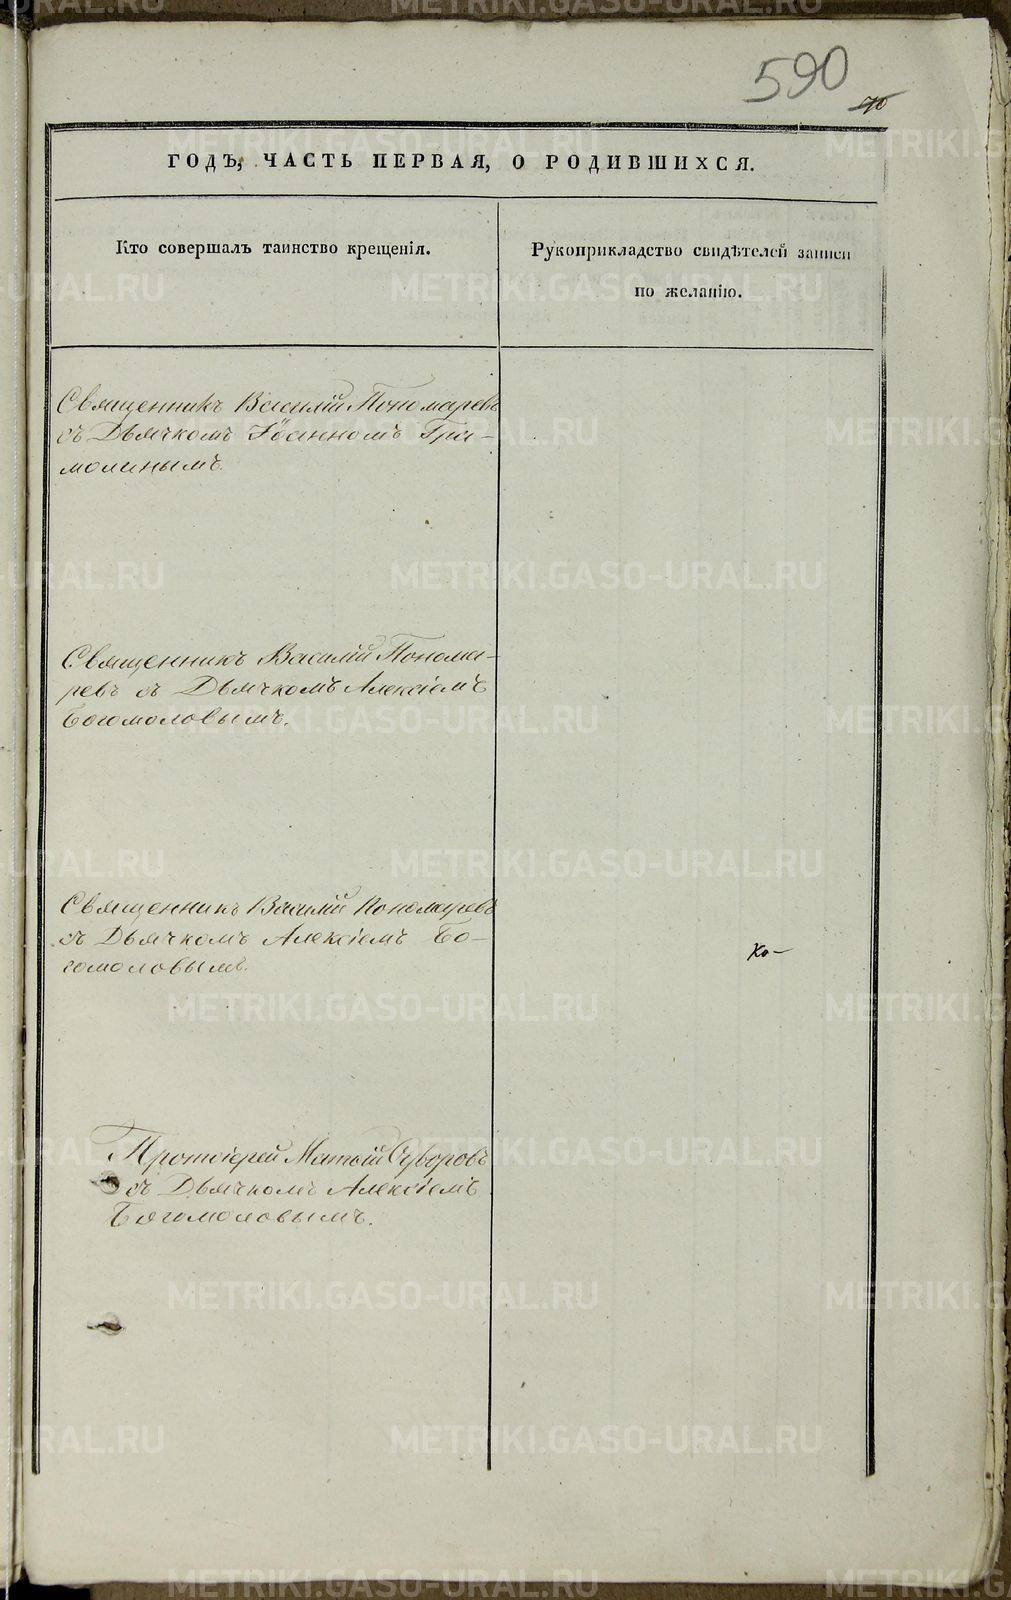 590
70
ГОДЪ, ЧАСТЬ ПЕРВАЯ, О РОДИВШИХСЯ.
Кто совершалъ таинство крещенія.
Рукоприкладство свидѣтелей записи
по желанію.
Священникъ Василій Пономаревъ
съ Дьячкомъ Іоанномъ Гра-
молинымъ.
Священникъ Василій Понома-
ревъ съ Дьячкомъ Алексіемъ
Богомоловымъ.
Священникъ Василій Пономаревъ
съ Дьячкомъ Алексіемъ Бо-
гомоловымъ.
Ко-
Протоіерей Матѳій Суворовъ
съ Дьячкомъ Алексіемъ
Богомоловымъ.
METRIKI.GASO-URAL.RU